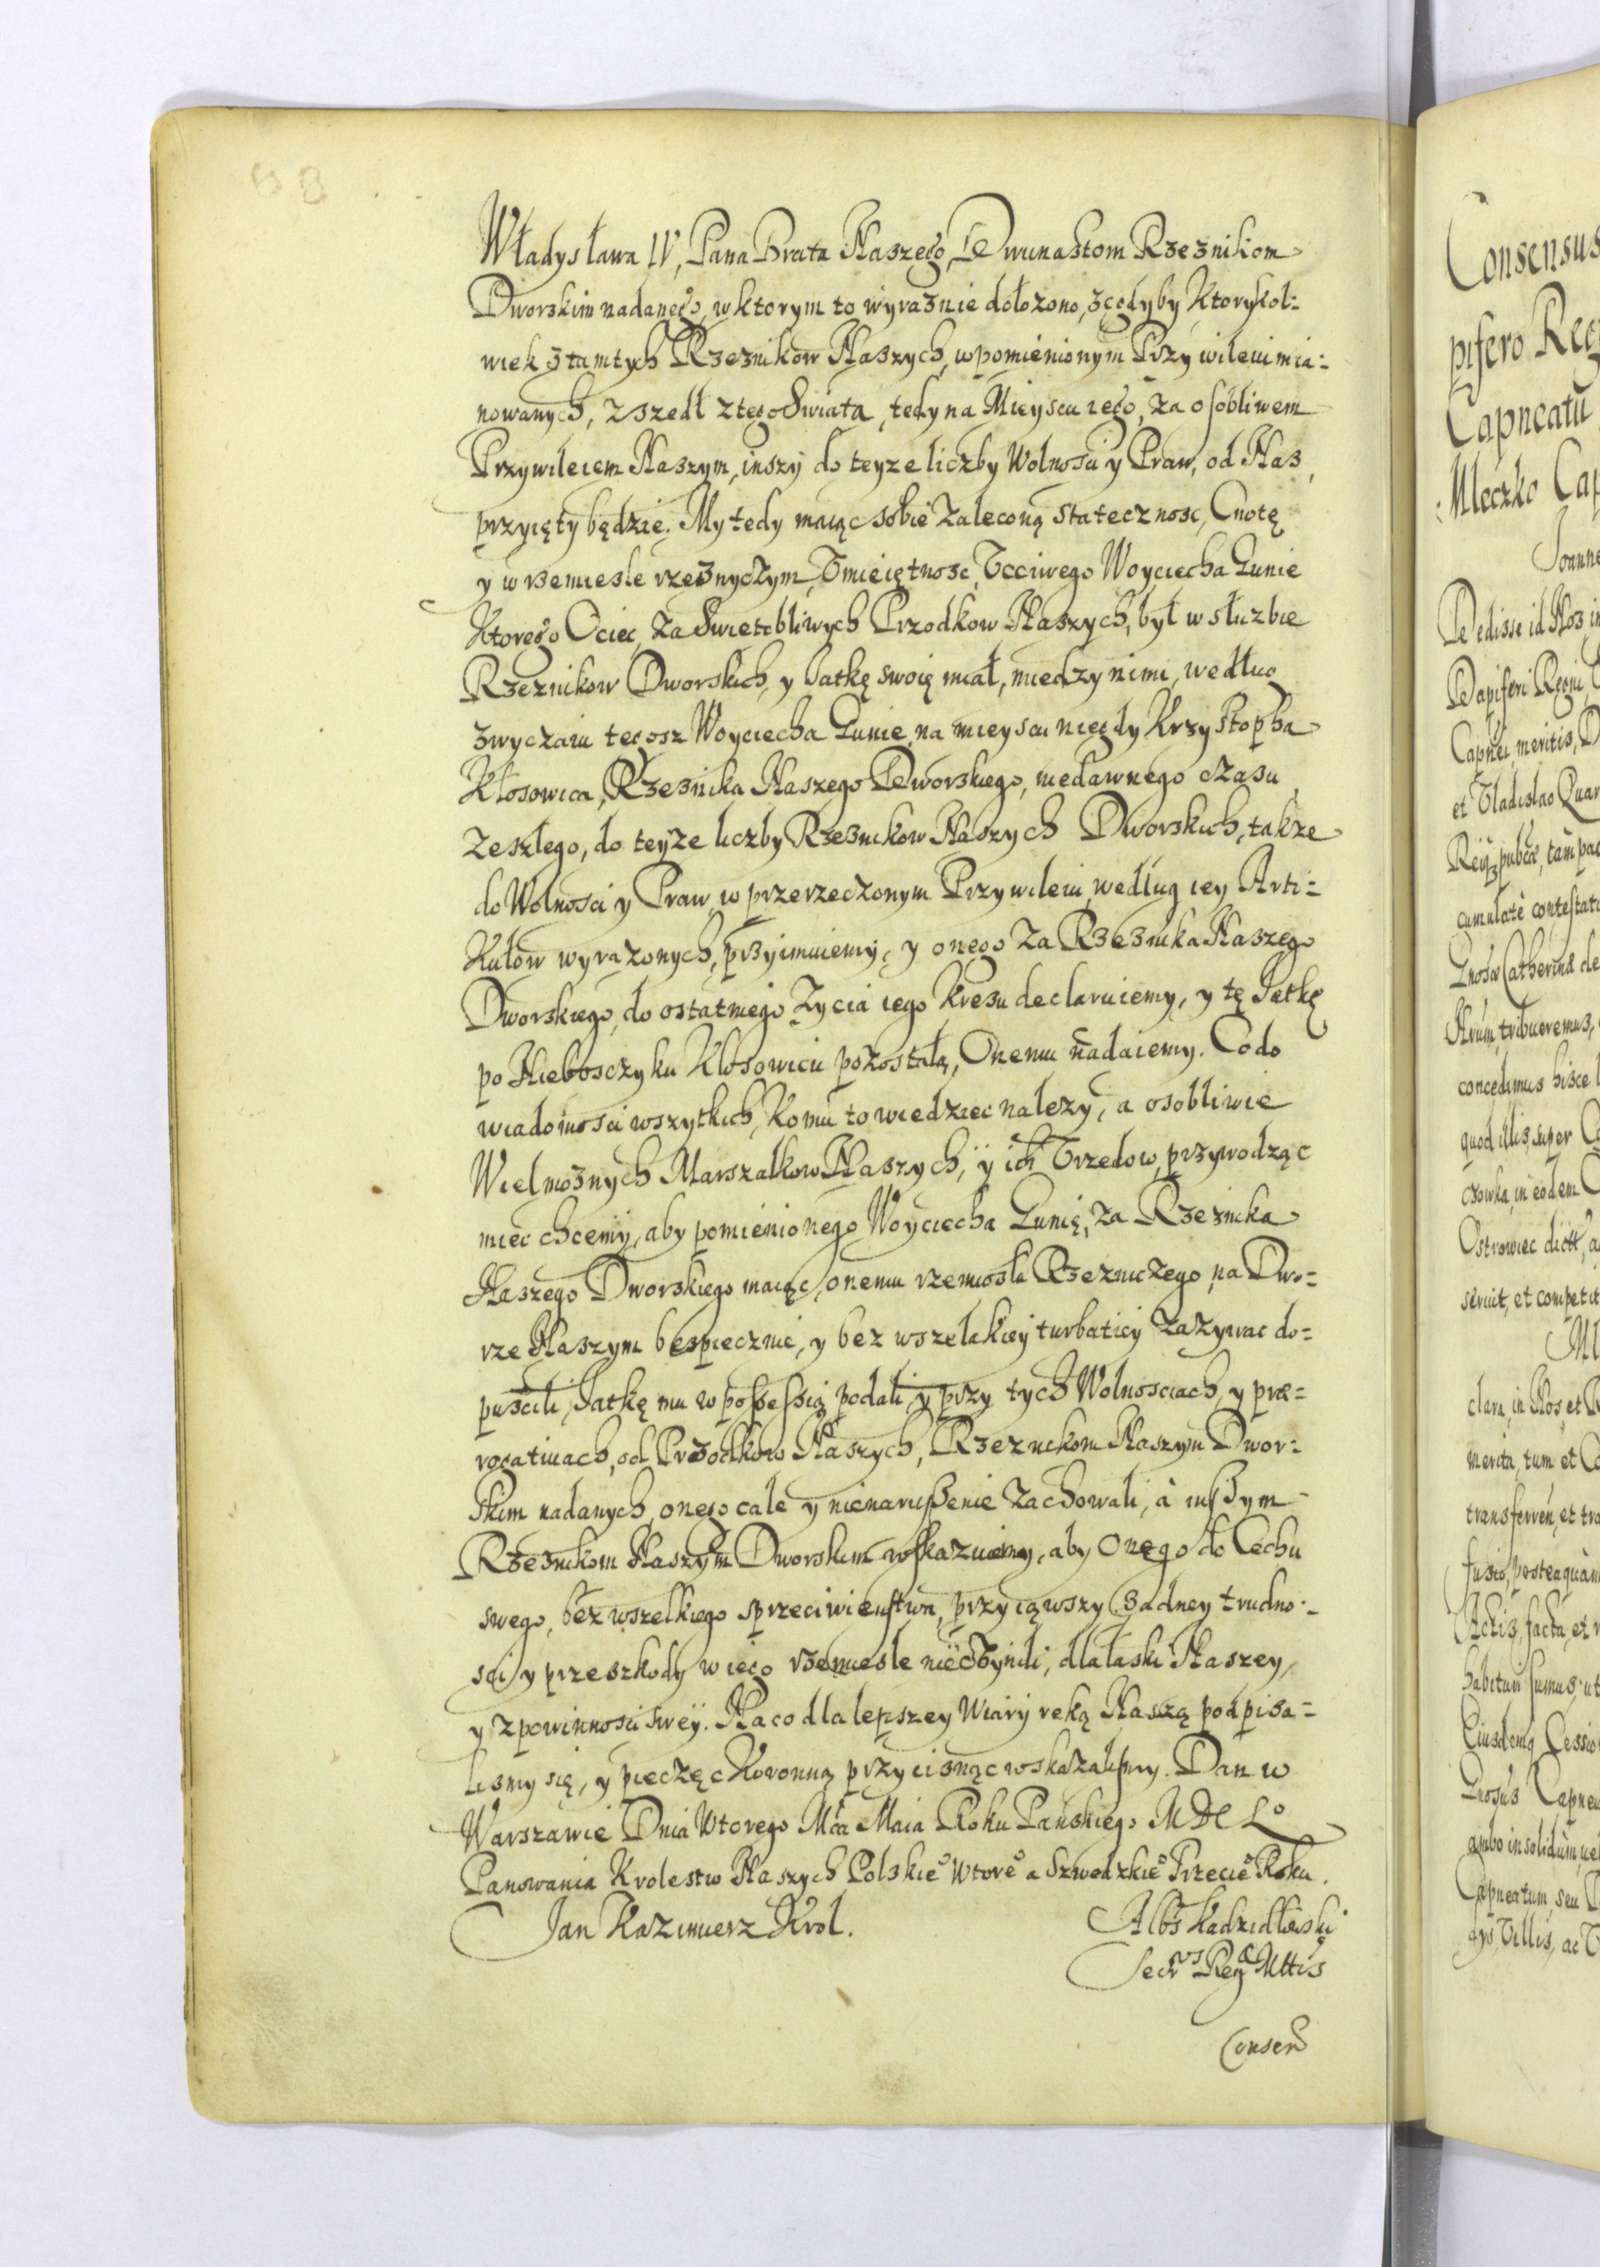 Władysława IV, Pana Brata Naszego, Dwunastom Rzeznikom
Dworskim nadanego, w ktorym to wyraznie dołozono, z gdyby ktorykol=
wiek z tamtych Rzeznikow Naszych, w pomienionym Przywileiu mia=
nowanych, zszedł z tego Swiata, tedy na Mieyscu iego, za osobliwem
Przywileiem Naszym, inszy do teyze liczby Wolnosci y Praw, od Nas
przyięty będzie. My tedy maiąc sobie zaleconą statecznosc, Cnotę
y w rzemiesle rzeznyczym, Vmieiętnosc, Vcciwego Woyciecha Lunie
Ktorego Ociec, za Swietobliwych Przodkow Naszych, był w słuzbie
Rzeznikow Dworskich, y Jatkę swoię miał, miedzy nimi, według
zwyczaiu tegosz Woyciecha Lunie, na mieyscu niegdy Krzysztopha
Kłosowica, Rzeznika Naszego Dworskiego, niedawnego czasu
zeszłego, do teyze liczby Rzeznikow Naszych Dworskich, takze
do Wolnosci y Praw, w przerzeczonym Przywileiu, według iey Arti=
kułow wyrazonych, przyimuiemy, y onego za Rzeznika Naszego
Dworskiego, do ostatniego zycia iego kresu declaruiemy, y tę Jatkę
po Nieboszczyku Kłosowicu pozostałą, Onemu nadaiemy. Co do
wiadomosci wszytkich, komu to wiedziec nalezy, a osobliwie
Wielmoznych Marszałkow Naszych, y ich Vrzedow, przywodząc
miec chcemy, aby pomienionego Woyciecha Lunię, za Rzeznika
Naszego Dworskiego maiąc, onemu rzemiosła Rzezniczego, na Dwo=
rze Naszym bespiecznie, y bez wszelakiey turbatiey zazywac do=
puscili, Jatkę mu w possessią podali, y przy tych Wolnosciach, y præ=
rogatiuach, od Przodkow Naszych, Rzeznikom Naszym Dwor=
skim nadanych, onego cale y nienarussenie zachowali, à inszym
Rzeznikom Naszym Dworskim wskazuiemy, aby Onego do Cechu
swego, bez wszelkiego sprzeciwienstwa, przyiąwszy zadney trudno=
sci y przeszkody w iego rzemiesle nie czynili, dla łaski Naszey,
y z powinnosci swey. Na co dla lepszey Wiary ręką Naszą podpisa=
lismy się, y pieczęc Koronną przycisnąc wskazalismy. Dan w
Warszawie Dnia Wtorego Mca Maia Roku Panskiego M DC Lº
Panowania Krolestw Naszych Polskieº Wtoreº a Szwedzkieº Trzecieº Roku.
Jan Kazimierz Krol.
Albs Kadzidłowski
Secrvs Regæ Mttis
Consens
Consensus
pifero Reg
Capneatu
Mleczko Cap
Joanne
Dedisse id Nos in
Dapiferi Regni,
Capnei, meritis, D
et Vladislao Quar
Reipubcæ, tam pac
cumulatè contestat
Gnosæ Catherinæ de
tribueremus,
concedimus hisce l
quod illis, super
in eodem
Ostrowiec dictt, a
seruit, et competit
Ml
clara, in Nos, et R
merita, tum et Co
transferren, et tra
fusio, posteaquàm
Actis, facta, et
habituri sumus, ut
Eiusdemq Cessio
Gnosus Capnea
ambo insolidum, uel
Capneatum, seu
Villis, ac